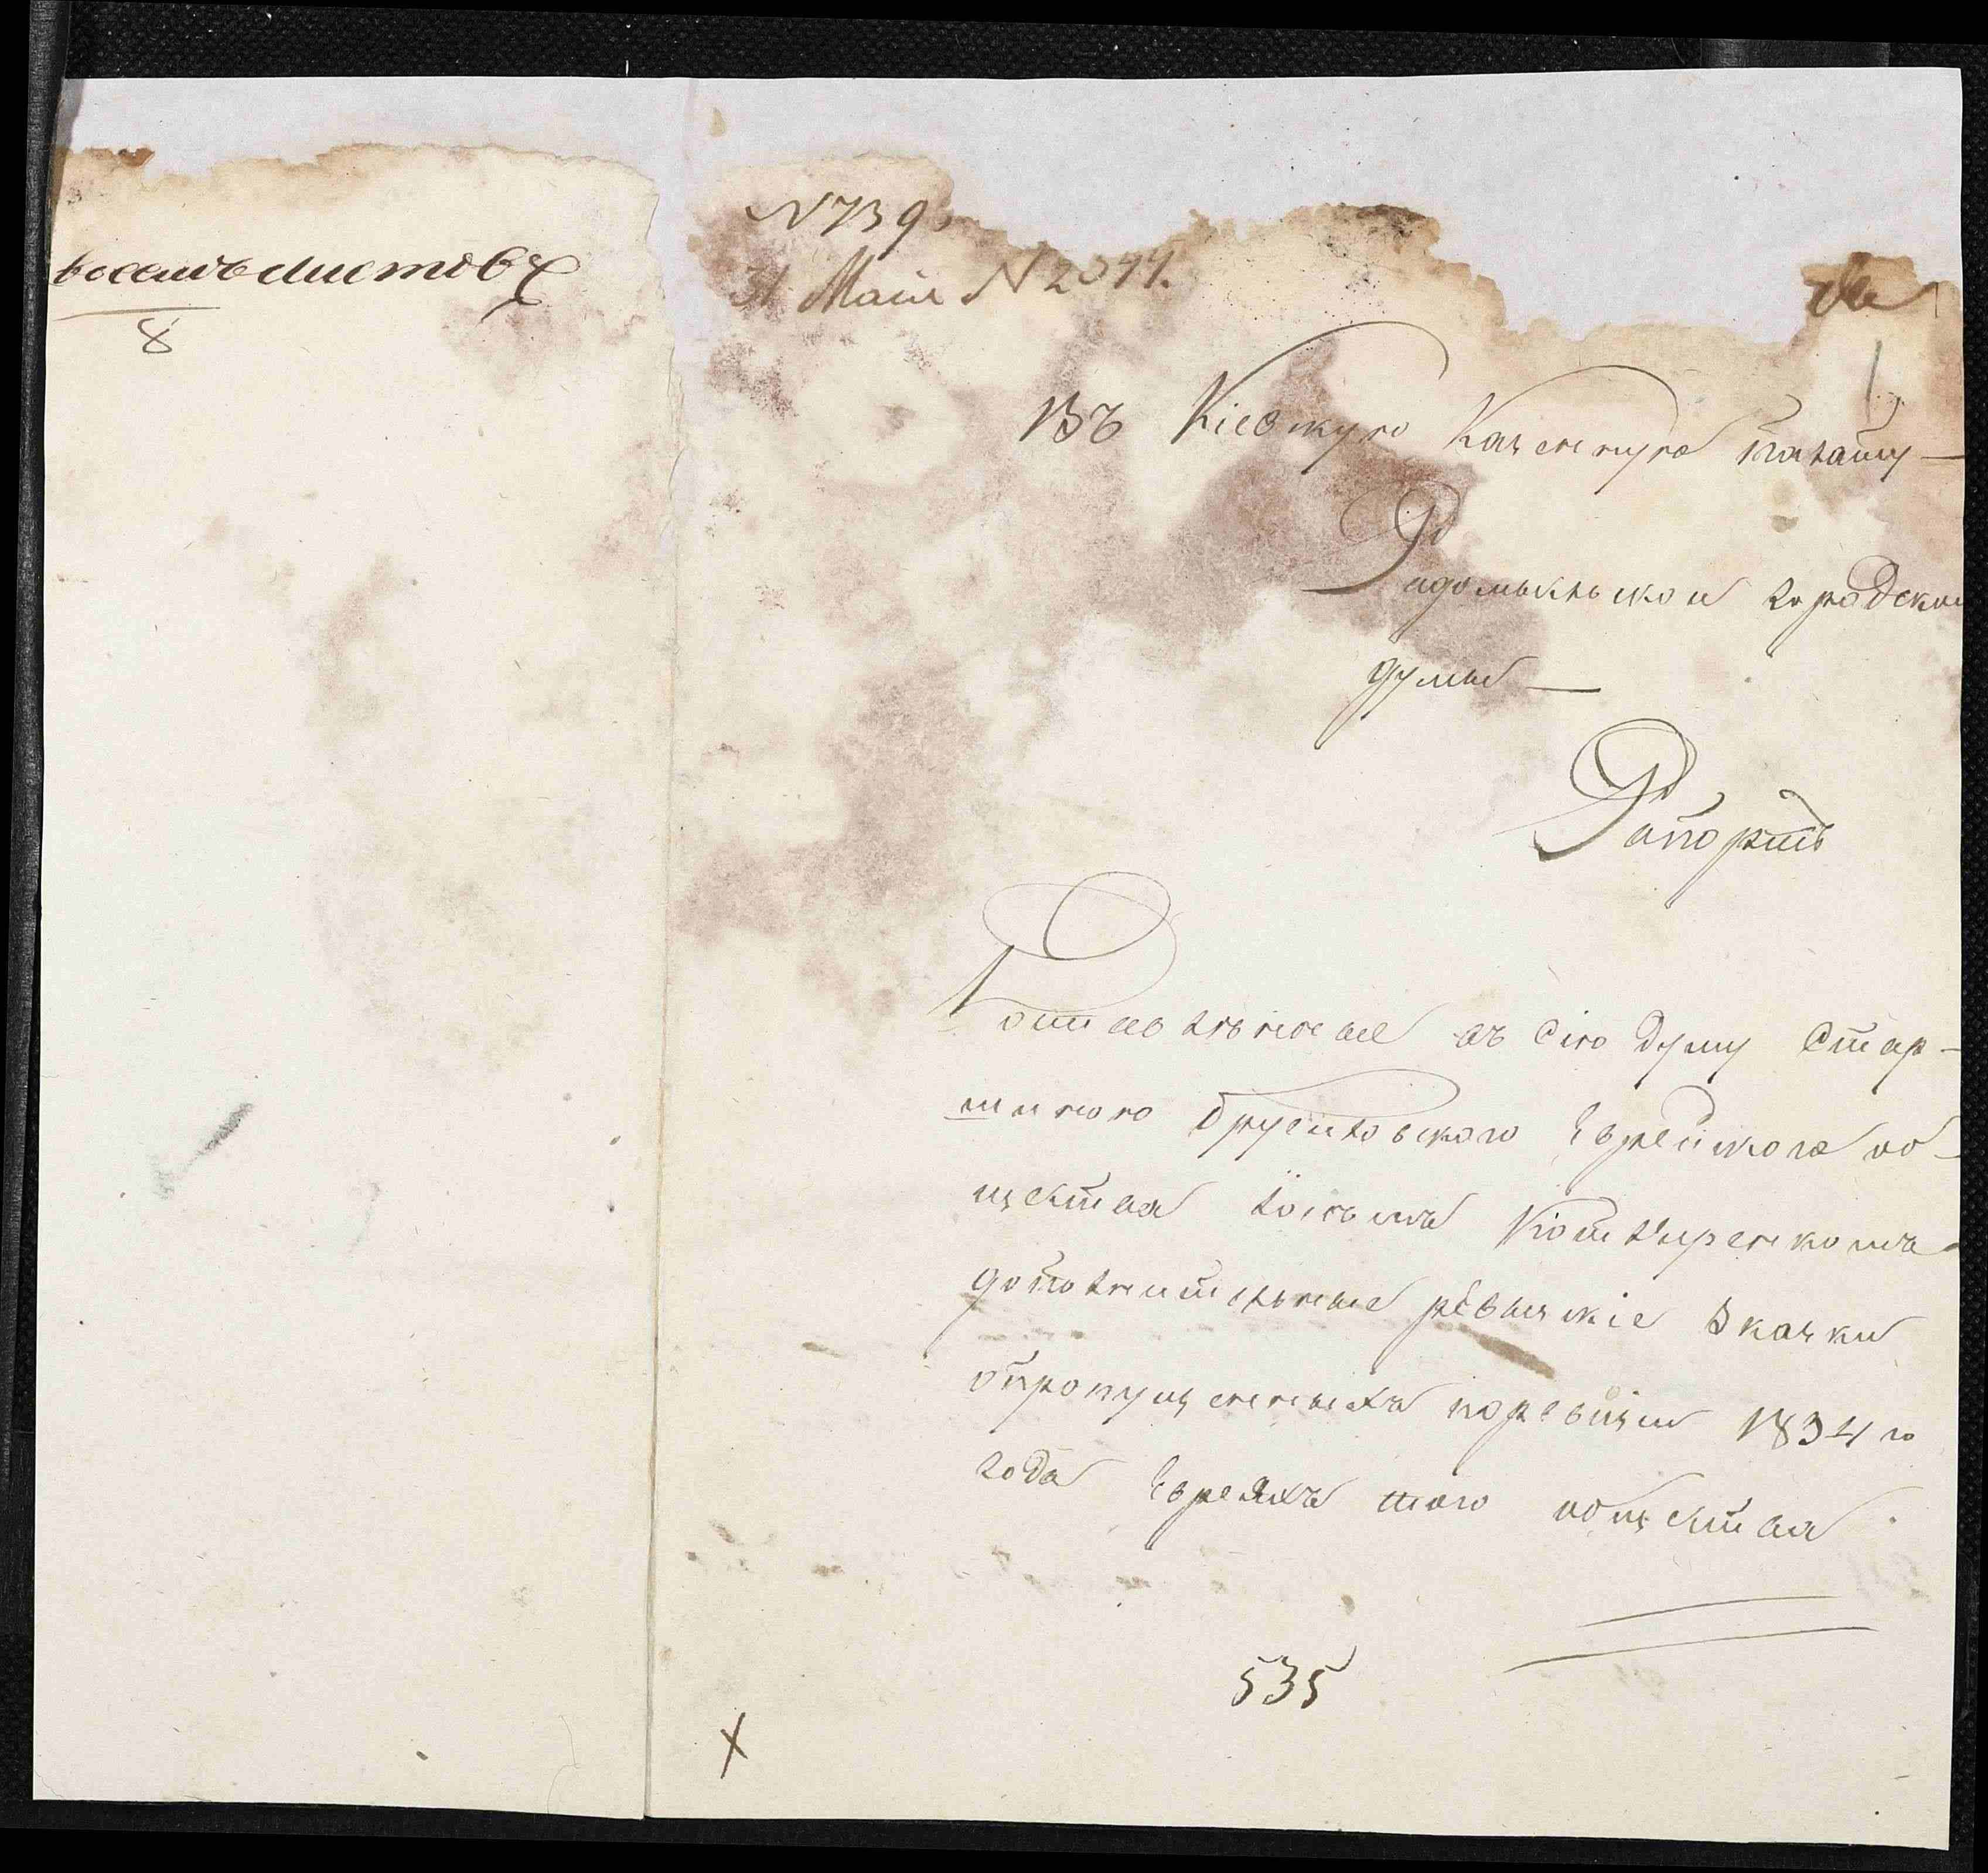 восемь листовъ
8
N 739
31 Маія N 2044.
Въ Кіевскую Казенную палату —
Радомысльской городской
думы —
Рапортъ
въ сію Думу Стар-
шиною Брусиловского Еврейского об-
щества
дополнительные ревизскіе Сказки
опропущенныхъ поревизіи 1834 го
года Евреяхъ того общества
535
X